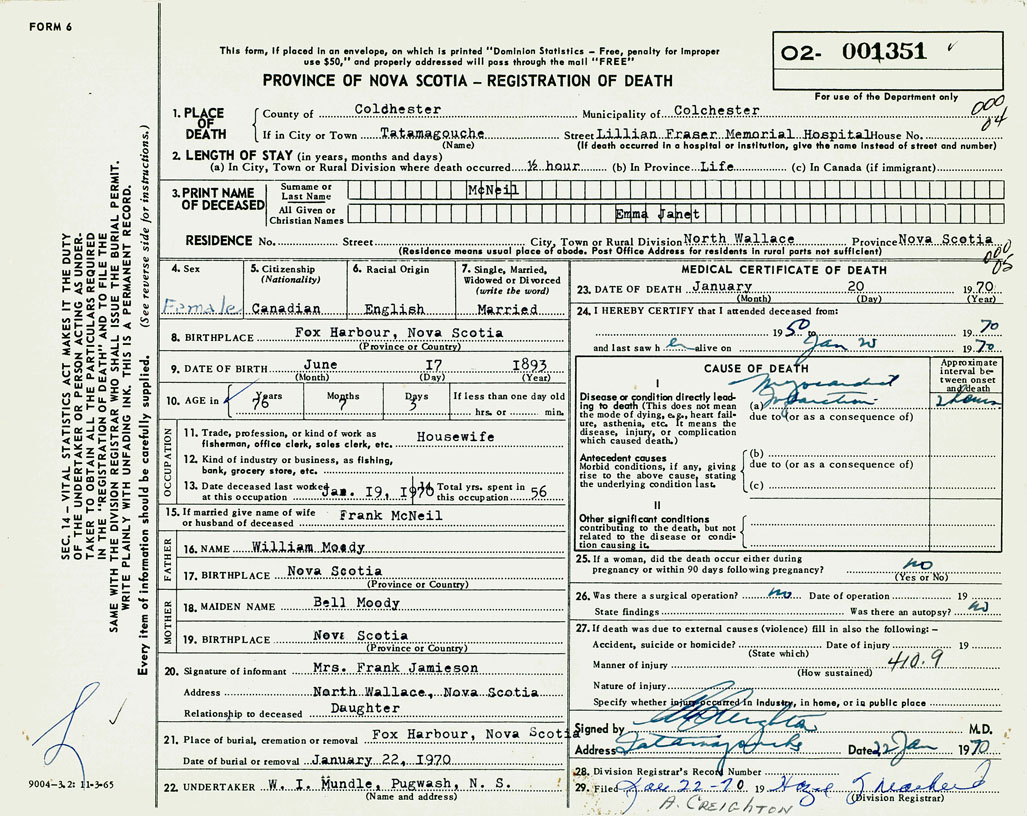 FORM 6
This form, if placed in an envelope, on which is printed "Dominion Statistics – Free, penalty for improper
use $50," and properly addressed will pass through the mail "FREE"
PROVINCE OF NOVA SCOTIA – REGISTRATION OF DEATH
O2- 001351
For use of the Department only
000
04
1. PLACE OF DEATH
County of Coldhester Municipality of Colchester
If in City or Town Tatamagouche Street Lillian Fraser Memorial Hospital House No.
(Name) (If death occurred in a hospital or institution, give the name instead of street and number)
2. LENGTH OF STAY (in years, months and days)
(a) In City, Town or Rural Division where death occurred ½ hour (b) In Province Life (c) In Canada (if immigrant)
3. PRINT NAME OF DECEASED
Surname or Last Name McNeil
All Given or Christian Names Emma Janet
RESIDENCE No. Street City, Town or Rural Division North Wallace Province Nova Scotia
(Residence means usual place of abode. Post Office Address for residents in rural parts not sufficient)
000
06
4. Sex Female
5. Citizenship (Nationality) Canadian
6. Racial Origin English
7. Single, Married, Widowed or Divorced (write the word) Married
8. BIRTHPLACE Fox Harbour, Nova Scotia
(Province or Country)
9. DATE OF BIRTH June 17 1893
(Month) (Day) (Year)
10. AGE in Years 76 Months 7 Days 3 If less than one day old
hrs. or min.
OCCUPATION
11. Trade, profession, or kind of work as
fisherman, office clerk, sales clerk, etc. Housewife
12. Kind of industry or business, as fishing,
bank, grocery store, etc.
13. Date deceased last worked
at this occupation Jan. 19, 1970
14 Total yrs. spent in
this occupation 56
15. If married give name of wife
or husband of deceased Frank McNeil
FATHER
16. NAME William Moody
17. BIRTHPLACE Nova Scotia
(Province or Country)
MOTHER
18. MAIDEN NAME Bell Moody
19. BIRTHPLACE Nova Scotia
(Province or Country)
20. Signature of informant Mrs. Frank Jamieson
Address North Wallace, Nova Scotia
Relationship to deceased Daughter
21. Place of burial, cremation or removal Fox Harbour, Nova Scotia
Date of burial or removal January 22, 1970
22. UNDERTAKER W. I. Mundle, Pugwash, N. S.
(Name and address)
MEDICAL CERTIFICATE OF DEATH
23. DATE OF DEATH January 20 1970
(Month) (Day) (Year)
24. I HEREBY CERTIFY that I attended deceased from:
1950 to 1970
and last saw her alive on Jan 20 1970
CAUSE OF DEATH
Approximate interval between onset and death
I
Disease or condition directly leading to death (This does not mean the mode of dying, e.g., heart failure, asthenia, etc. It means the disease, injury, or complication which caused death.)
(a) Myocardial Infarction 2 hours
due to (or as a consequence of)
Antecedent causes
Morbid conditions, if any, giving rise to the above cause, stating the underlying condition last.
(b)
due to (or as a consequence of)
(c)
II
Other significant conditions
contributing to the death, but not related to the disease or condition causing it.
25. If a woman, did the death occur either during
pregnancy or within 90 days following pregnancy? no
(Yes or No)
26. Was there a surgical operation? no Date of operation 19
State findings Was there an autopsy? no
27. If death was due to external causes (violence) fill in also the following: –
Accident, suicide or homicide? Date of injury 19
(State which)
Manner of injury 410.9
(How sustained)
Nature of injury
Specify whether injury occurred in Industry, in home, or in public place
Signed by Creighton M.D.
Address Tatamagouche Dated 22 Jan 1970
28. Division Registrar's Record Number
29. Filed Jan 22-70 19
(Division Registrar)
A. CREIGHTON
SEC. 14 – VITAL STATISTICS ACT MAKES IT THE DUTY
OF THE UNDERTAKER OR PERSON ACTING AS UNDER-
TAKER TO OBTAIN ALL THE PARTICULARS REQUIRED
IN THE "REGISTRATION OF DEATH" AND TO FILE THE
SAME WITH THE DIVISION REGISTRAR WHO SHALL ISSUE THE BURIAL PERMIT.
WRITE PLAINLY WITH UNFADING INK. THIS IS A PERMANENT RECORD.
Every item of information should be carefully supplied. (See reverse side for instructions.)
9004-3.2: 11-3-65